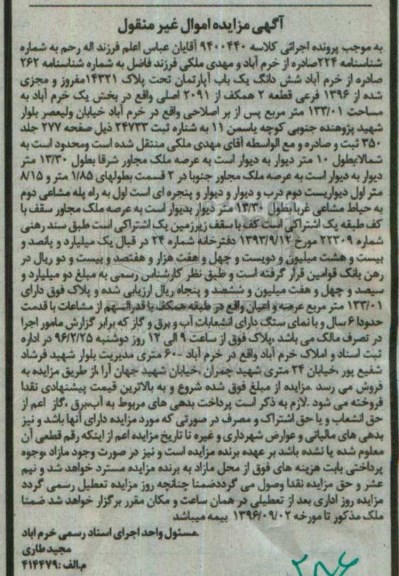 آگهی مزایده اموال غیر منقول
به موجب پرونده اجرائی کلاسه ۹۴۰۰۴۴۰ آقایان عباس اعلم فرزند اله رحم به شماره
شناسنامه ۲۲۴صادره از خرم آباد و مهدی ملکی فرزند فاضل به شماره شناسنامه ۲۶۲
صادره از خرم آباد شش دانگ یک باب آپارتمان تحت پلاک ۱۴۳۲۱مفروز و مجزی
شده از ۱۳۹۶ فرعی قطعه ۲ همکف از ۲۰۹۱ اصلی واقع در بخش یک خرم آباد به
مساحت ۱۳۳/۰۱ متر مربع پس از بر اصلاحی واقع در خرم آباد خیابان ولیعصر بلوار
شهید پژوهنده جنوبی کوچه یاسمن ۱۱ به شماره ثبت ۲۴۷۳۳ ذیل صفحه ۲۷۷ جلد
۳۵۰ ثبت و صادره و مع الواسطه آقای مهدی ملکی منتقل شده است ومحدود است به
شمالابطول ۱۰ متر دیوار به دیوار است به عرصه ملک مجاور شرقا بطول ۱۳/۳۰ متر
دیوار به دیوار است به عرصه ملک مجاور جنوبا در ۲ قسمت بطولهای ۱/۸۵ متر و ۸/۱۵
متر اول دیواریست دوم درب و دیوار و دیوار و پنجره ای است اول به راه پله مشاعی دوم
به حیاط مشاعی غربا بطول ۱۳/۳۰ متر دیوار بدیوار است به عرصه ملک مجاور سقف با
کف طبقه یک اشتراکی است کف با سقف زیرزمین یک اشتراکی است طبق سند رهنی
شماره ۲۲۳۰۹ مورخ ۱۳۹۳/۹/۱۲ دفترخانه شماره ۲۴ در قبال یک میلیارد و پانصد و
بیست و هشت میلیون و دویست و چهل و هفت هزار و هفتصد و بیست و دو ریال در
رهن بانک قوامین قرار گرفته است و طبق نظر کارشناس رسمی به مبلغ دو میلیارد و
سیصد و چهل و هفت میلیون و ششصد و پنجاه ریال ارزیابی شده و پلاک فوق دارای
۱۳۳/۰۱ متر مربع عرصه و اعیان واقع در طبقه همکف با قدرالسهم از مشاعات با قدمت
حدودا ۶ سال و با نمای سنگ دارای انشعابات آب و برق و گاز که برابر گزارش مامور اجرا
در تصرف مالک می باشد ،پلاک فوق از ساعت ۹ الی ۱۲ روز دوشنبه ۹۶/۲/۲۵ در اداره
ثبت اسناد و املاک خرم آباد واقع در خرم آباد -۶۰ متری مدیریت بلوار شهید فرشاد
شفیع پور ،خیابان ۲۴ متری شهید چمران ،خیابان شهید جهان آرا ،از طریق مزایده به
فروش می رسد .مزایده از مبلغ فوق شده شروع و به بالاترین قیمت پیشنهادی نقدا
فروخته می شود .لازم به ذکر است پرداخت بدهی های مربوط به آب،برق ،گاز اعم از
حق انشعاب و یا حق اشتراک و مصرف در صورتی که مورد مزایده دارای آنها باشد و نیز
بدهی های مالیاتی و عوارض شهرداری و غیره تا تاریخ مزایده اعم از اینکه رقم قطعی آن
معلوم شده یا نشده باشد بر عهده برنده مزایده است و نیز در صورت وجود مازاد ،وجوه
پرداختی بابت هزینه های فوق از محل مازاد به برنده مزایده مسترد خواهد شد و نیم
عشر و حق مزایده نقدا وصول می گرددضمنا چنانچه روز مزایده تعطیل رسمی گردد
مزایده روز اداری بعد از تعطیلی در همان ساعت و مکان مقرر برگزار خواهد شد ضمنا
ملک مذکور تا مورخه ۱۳۹۶/۰۹/۰۲ بیمه میباشد
مسئول واحد اجرای اسناد رسمی خرم اباد
مجید طاری
م.الف :۴۱۴۴۷۹
۲۸۶